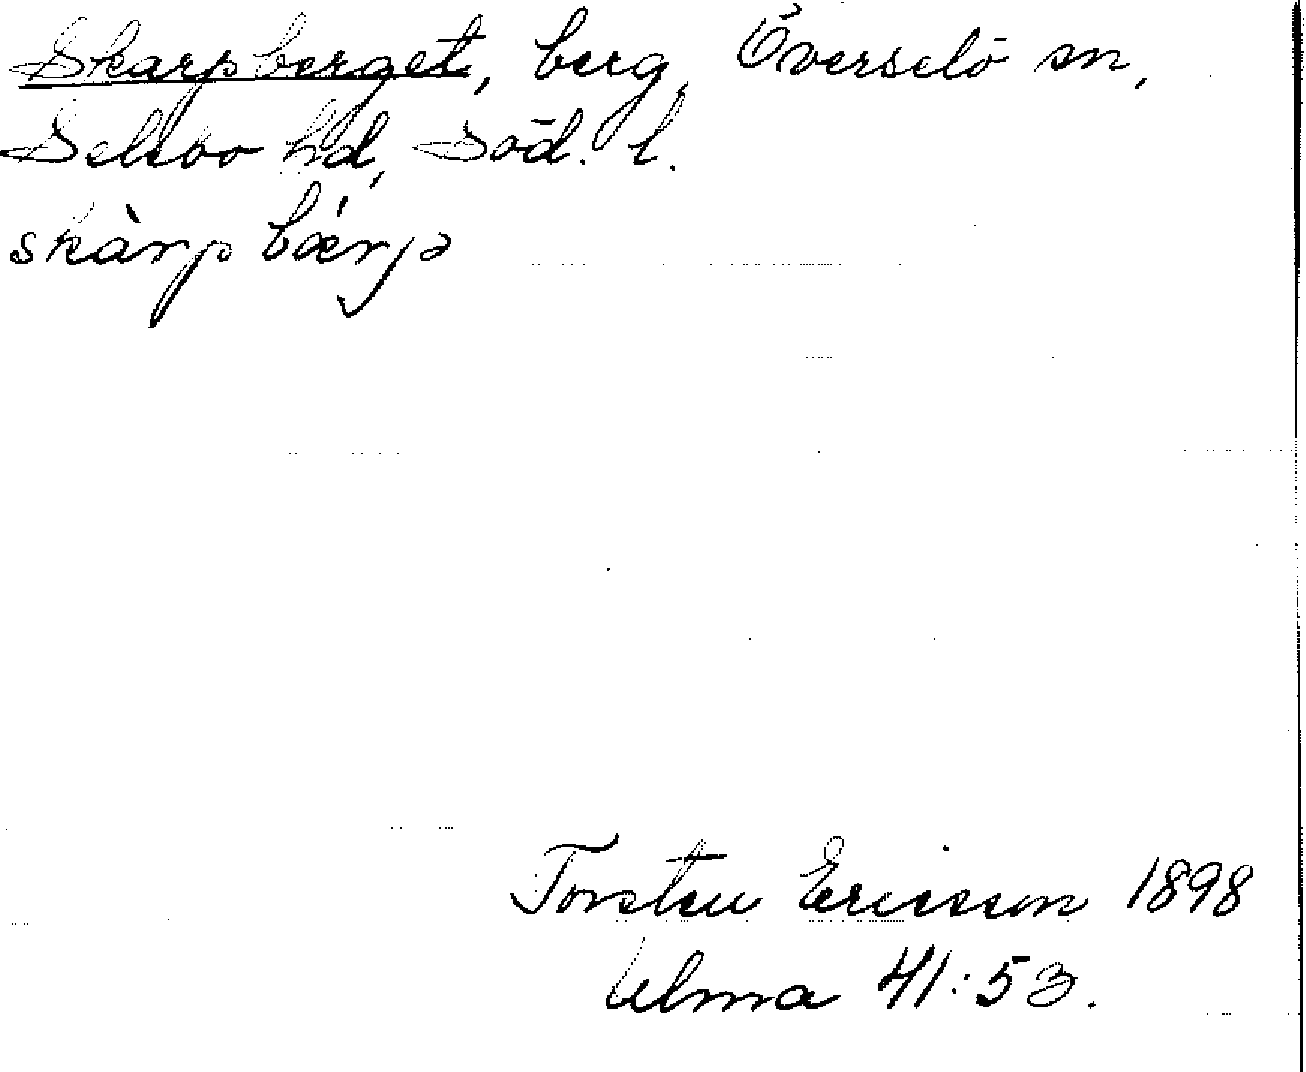 Skarpberget, berg, Överselö sn,
Selebo hd, Söd. l.
skàrpbǽrjə
Torsten Ericsson 1898
Ulma 41:53.